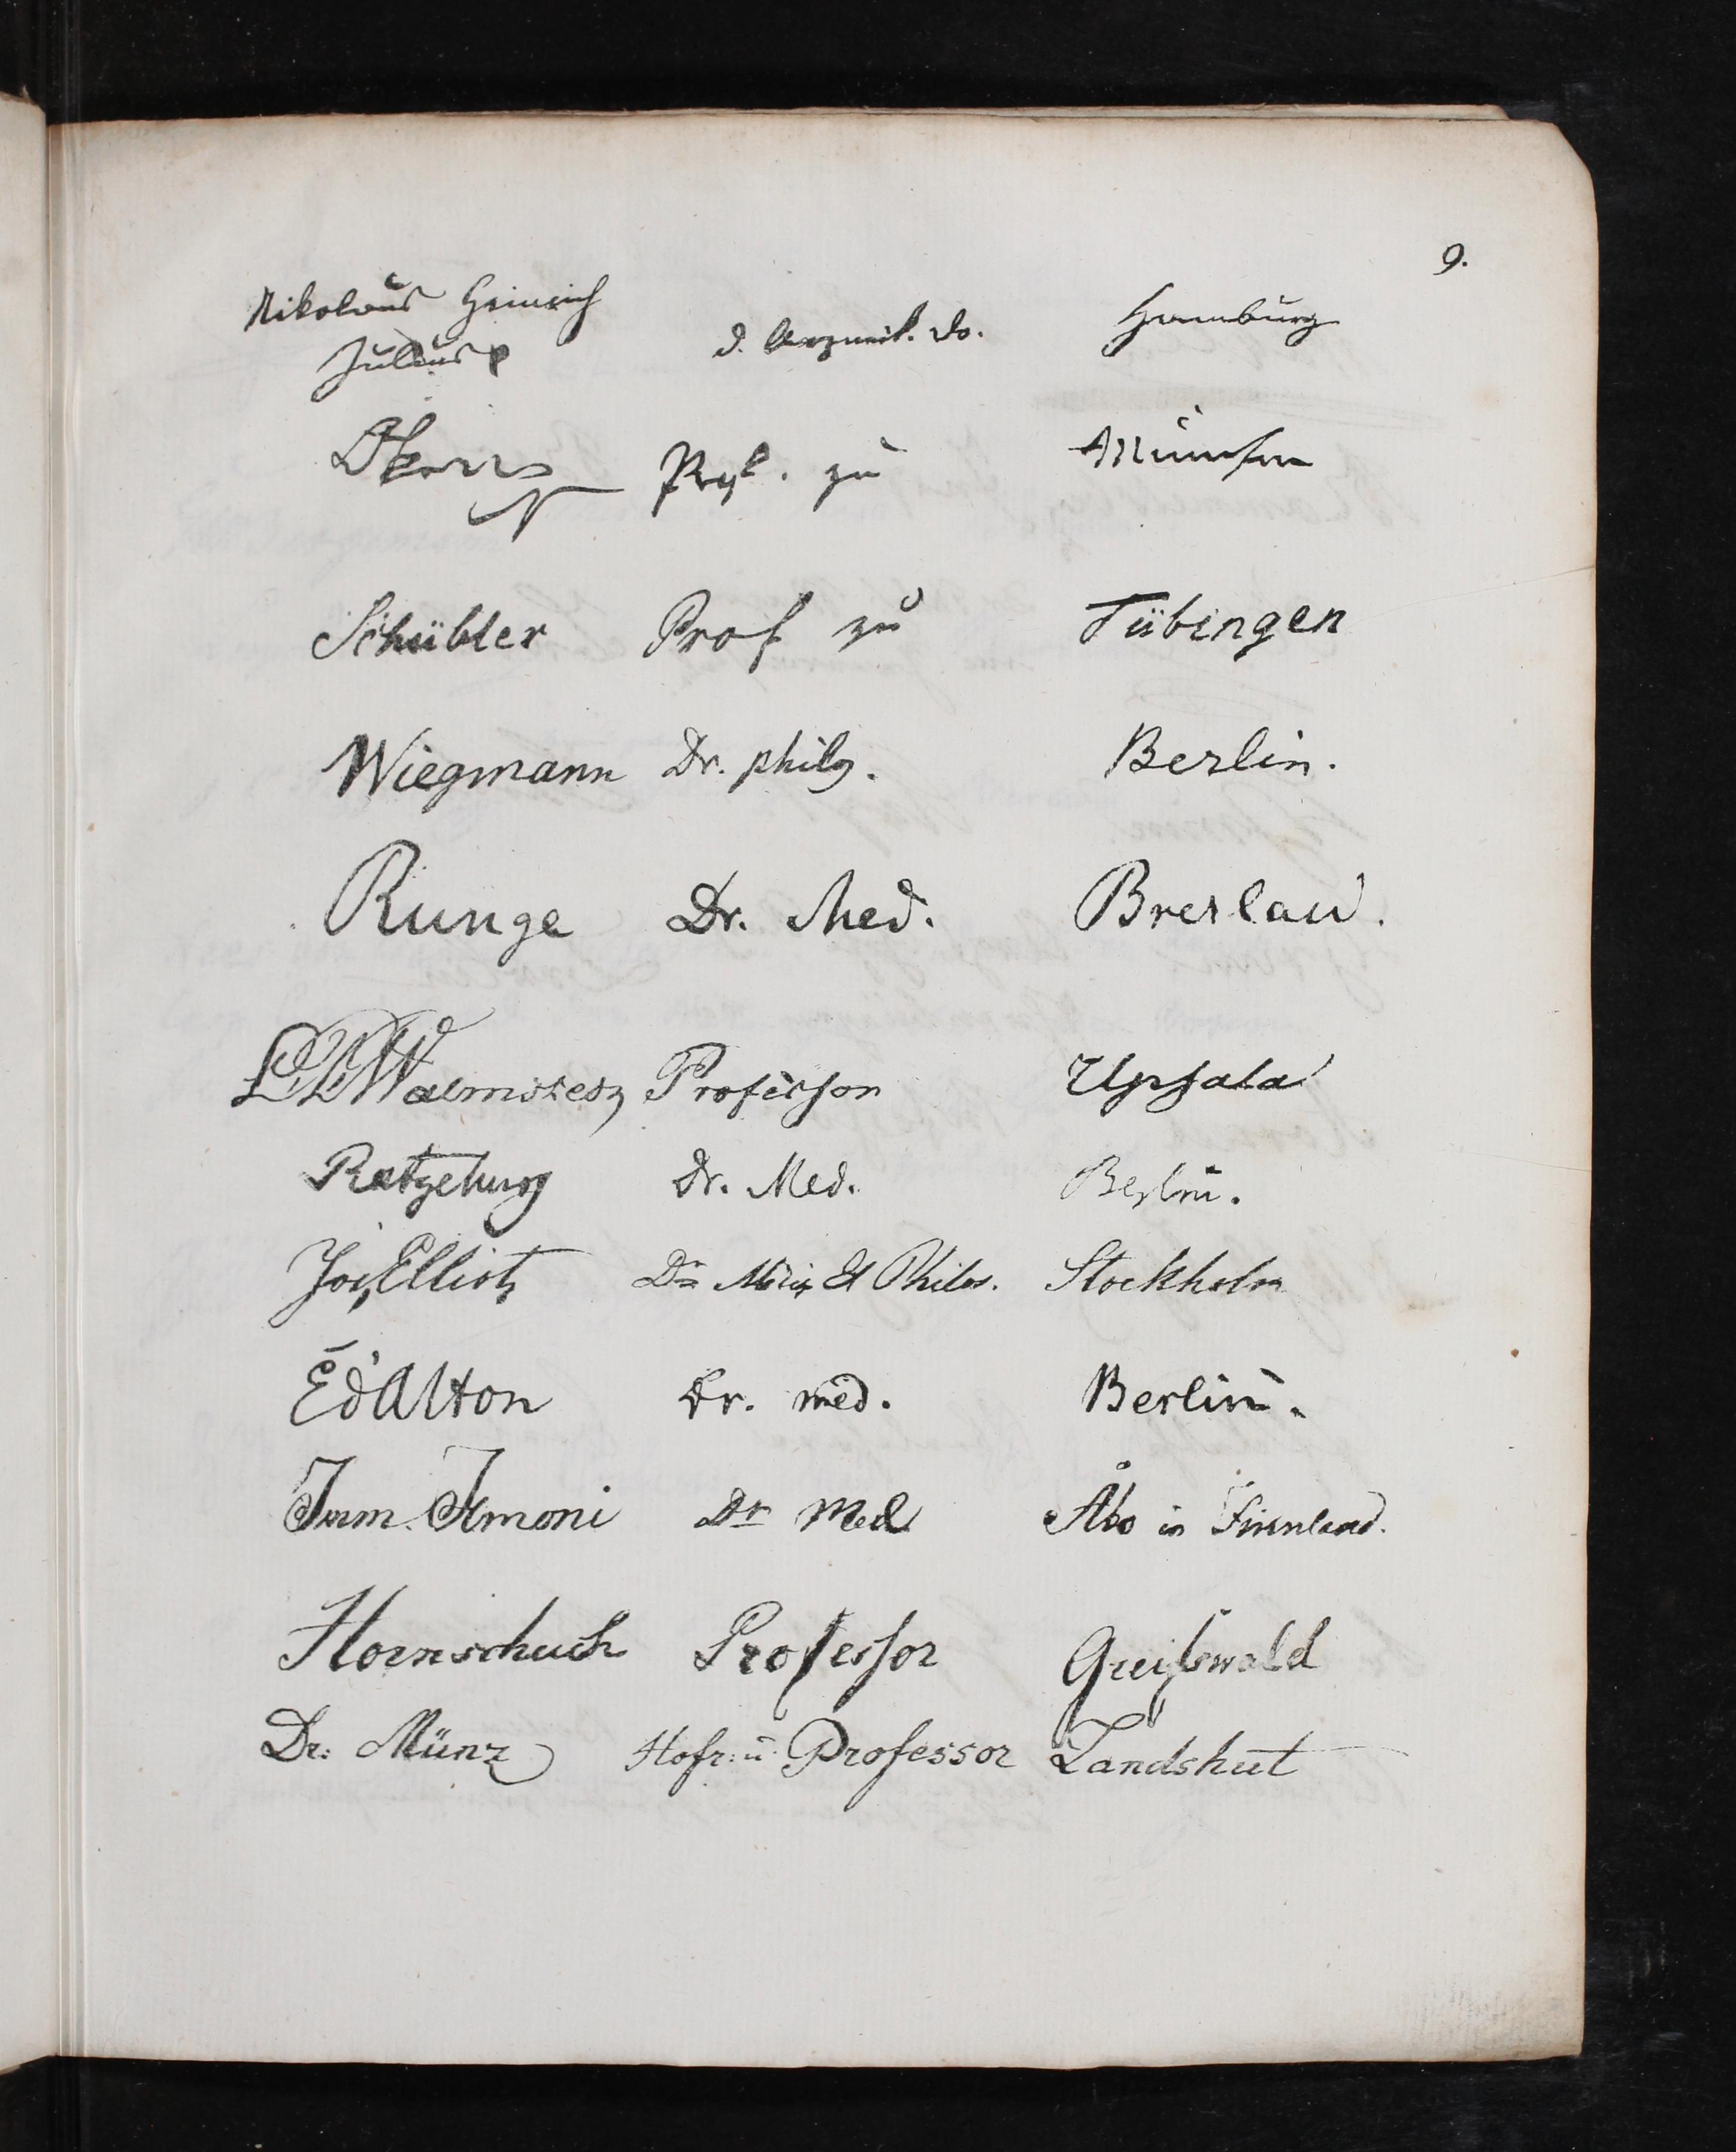 9.
Nikolaus Heinrich
Julius d. Arzneik. Dr. Hamburg
Oken Prof. zu München
Schübler Prof zu Tübingen
Wiegmann Dr. philos. Berlin.
Runge Dr. Med. Breslau.
Professor Upsala
Ratzeburg Dr. Med. Berlin.
Dr Med Et Philos. Stockholm
Ed'Alton Dr. med. Berlin.
Imm. Ilmoni Dr Med Åbo in Finnland.
Hornschuch Professor Greifswald
Dr. Münz Hofr: u. Professor Landshut